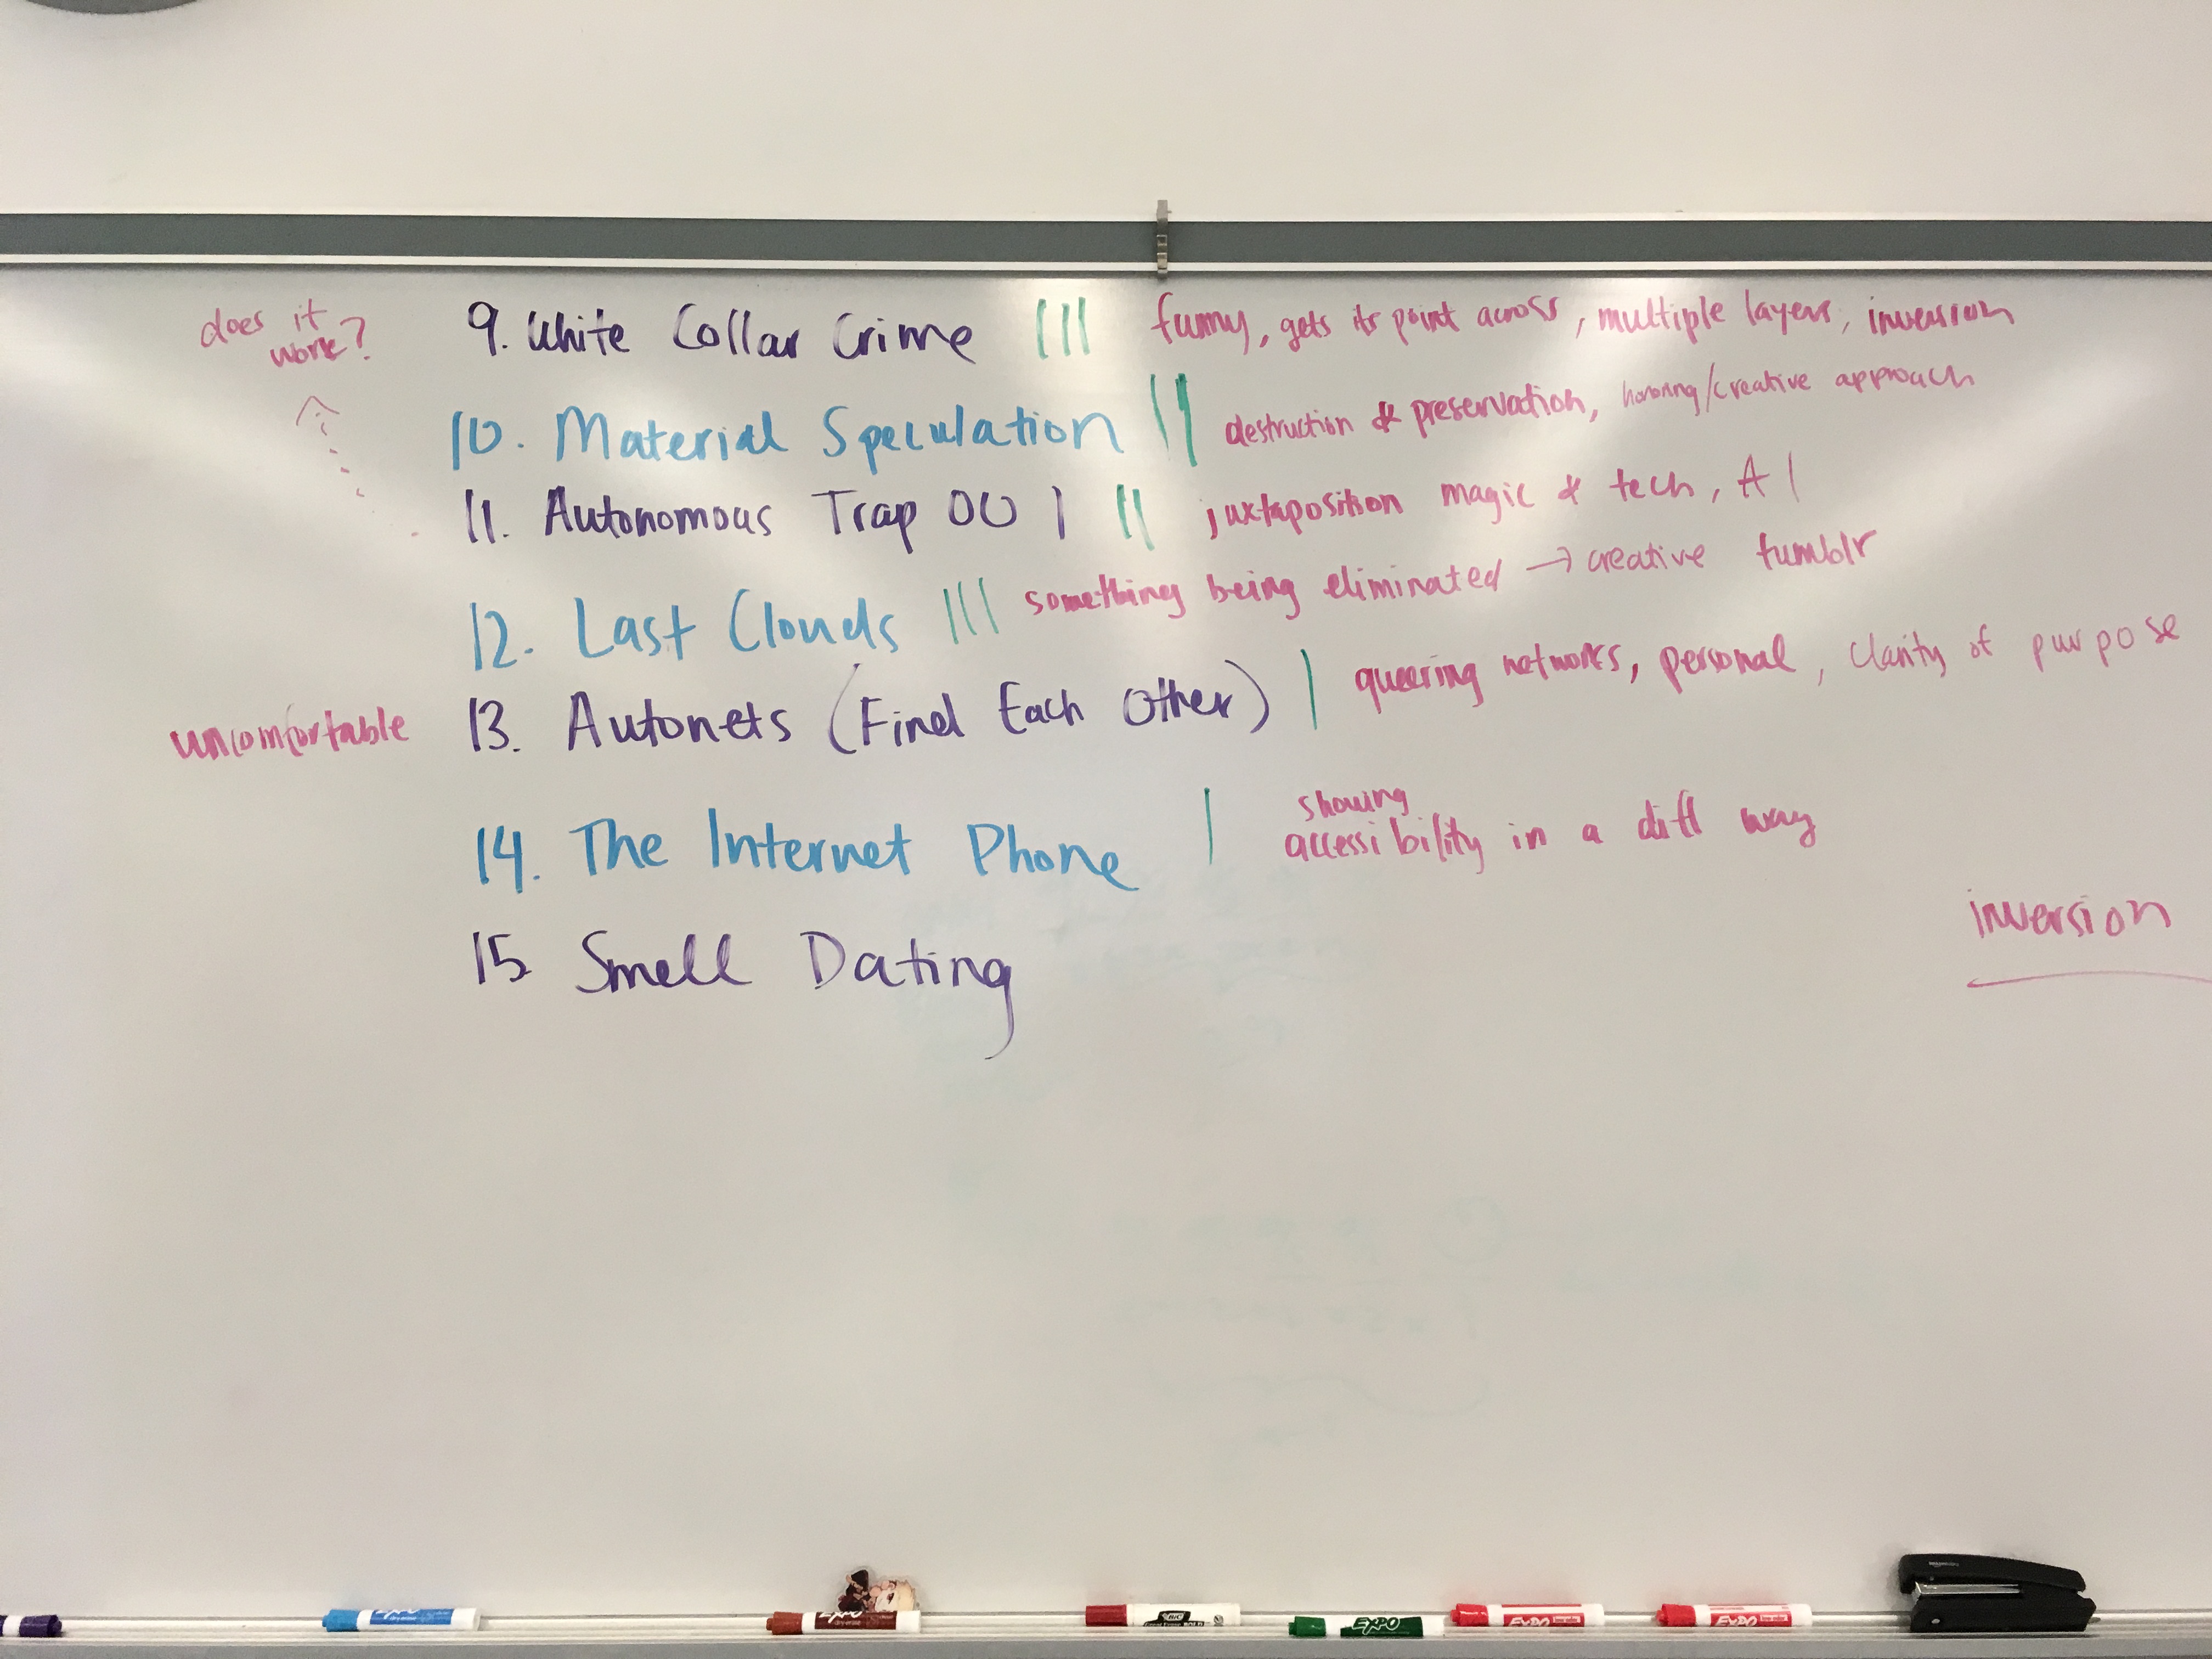 does it
work?
9. White Collar Crime ||| funny, gets its point across, multiple layers, inversion
10. Material Speculation || destruction & preservation, honoring/creative approach
11. Autonomous Trap 001 || juxtaposition magic & tech, AI
12. Last Clouds ||| something being eliminated → creative tumblr
uncomfortable 13. Autonets (Find Each Other) | queering networks, personal, clarity of purpose
14. The Internet Phone | showing
accessibility in a diff way
inversion
15 Smell Dating
EXPO
EXPO
BIC
EXPO
EXPO
EXPO